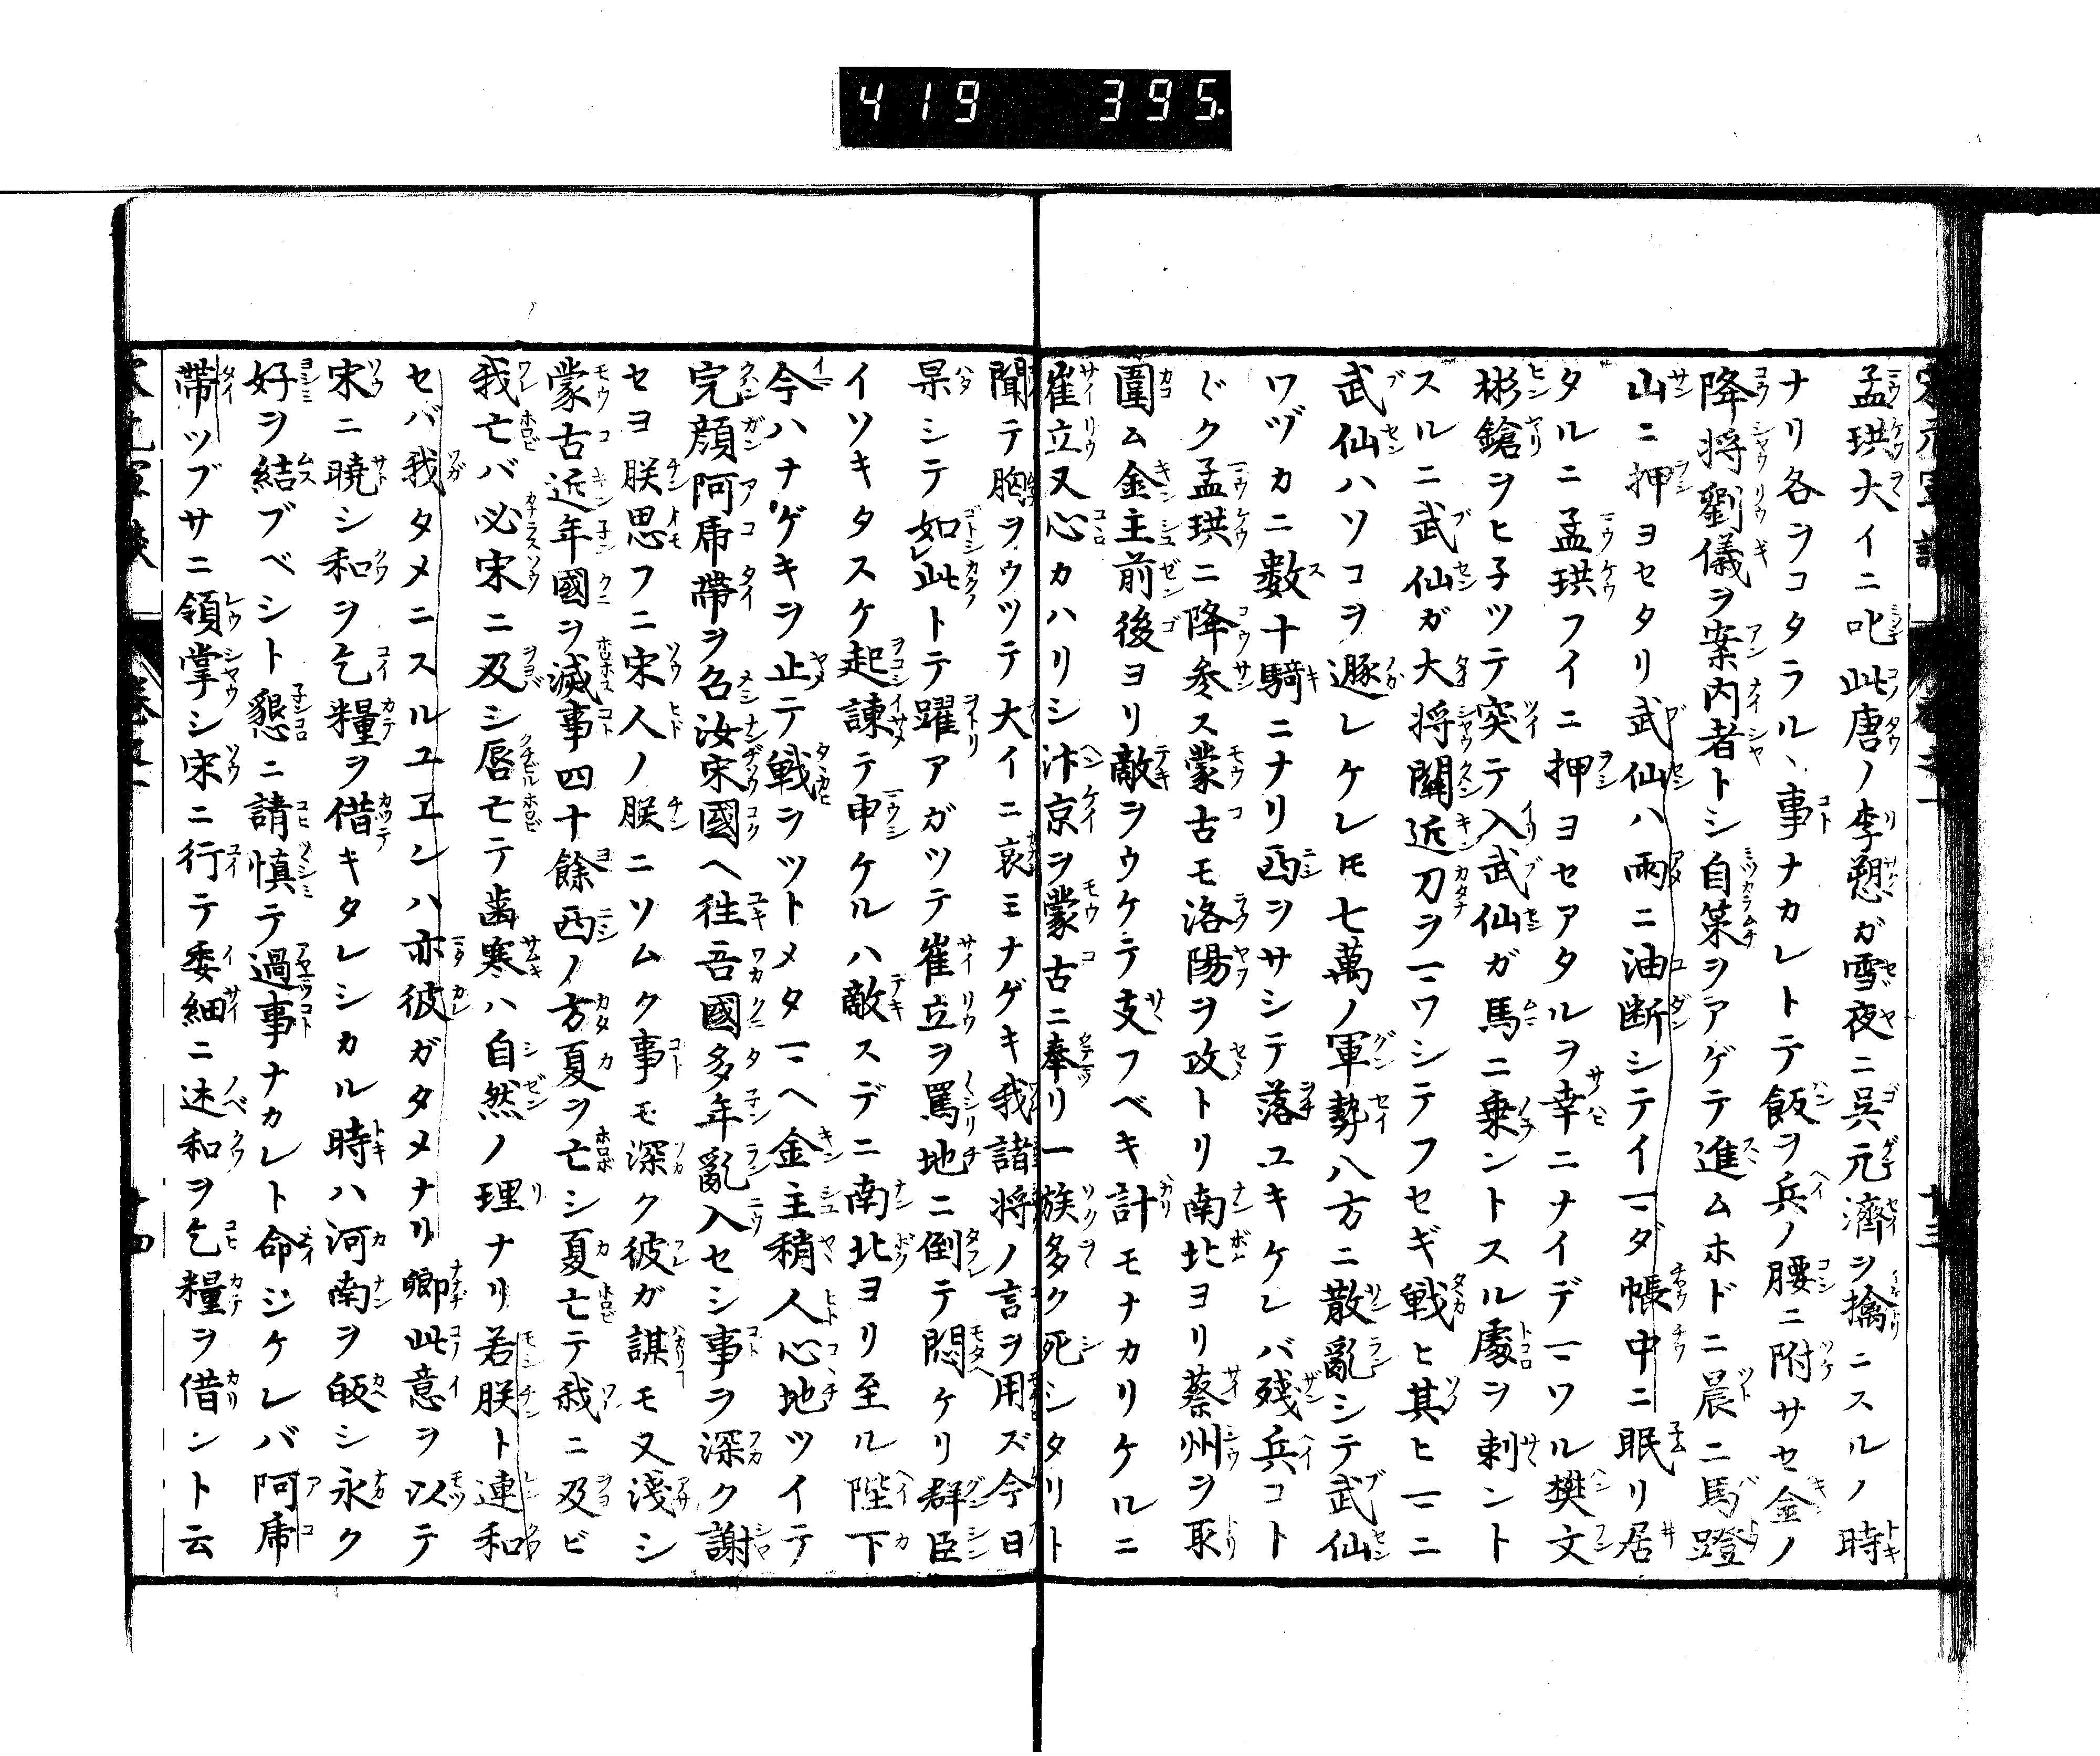 419 395.
孟珙大イニ叱此唐ノ李愬ガ雪夜ニ呉元濟ヲ擒ニスルノ時
ナリ各ヲコタラル、事ナカレトテ飯ヲ兵ノ腰ニ附サセ金ノ
降将劉儀ヲ案内者トシ自策ヲアゲテ進ムホドニ晨ニ馬蹬
山ニ押ヨセタリ武仙ハ雨ニ油断シテイマダ帳中ニ眠リ居
タルニ孟珙フイニ押ヨセアタルヲ幸ニナイデマワル樊文
彬鎗ヲヒ子ツテ突テ入武仙ガ馬ニ乗ントスル處ヲ刺ント
スルニ武仙ガ大将闗近刀ヲマワシテフセギ戦ヒ其ヒマニ
武仙ハソコヲ遯レケレ𪜈七萬ノ軍勢八方ニ散亂シテ武仙
ワヅカニ数十騎ニナリ西ヲサシテ落ユキケレバ残兵コト
〲ク孟珙ニ降参ス蒙古モ洛陽ヲ攻トリ南北ヨリ蔡州ヲ取
圍ム金主前後ヨリ敵ヲウケテ支フベキ計モナカリケルニ
崔立又心カハリシ汴京ヲ蒙古ニ奉リ一族多ク死シタリト
聞テ胸ヲウツテ大イニ哀ミナゲキ我諸将ノ言ヲ用ズ今日
果シテ如レ此トテ躍アガツテ崔立ヲ罵地ニ倒テ悶ケリ群臣
イソキタスケ起諫テ申ケルハ敵スデニ南北ヨリ至ル陛下
今ハナゲキヲ止テ戦ヲツトメタマヘ金主稍人心地ツイテ
完顔阿乕帶ヲ召汝宋國ヘ徃吾國多年亂入セシ事ヲ深ク謝
セヨ朕思フニ宋人ノ朕ニソムク事モ深ク彼ガ謀モ又淺シ
蒙古近年國ヲ滅事四十餘西ノ方夏ヲ亡シ夏亡テ我ニ及ビ
我亡バ必宋ニ及シ唇亡テ歯寒ハ自然ノ理ナリ若朕ト連和
セバ我タメニスルユヱンハ亦彼ガタメナリ卿此意ヲ以テ
宋ニ曉シ和ヲ乞糧ヲ借キタレシカル時ハ河南ヲ皈シ永ク
好ヲ結ブベシト懇ニ請慎テ過事ナカレト命ジケレバ阿乕
帶ツブサニ領掌シ宋ニ行テ委細ニ述和ヲ乞糧ヲ借ント云